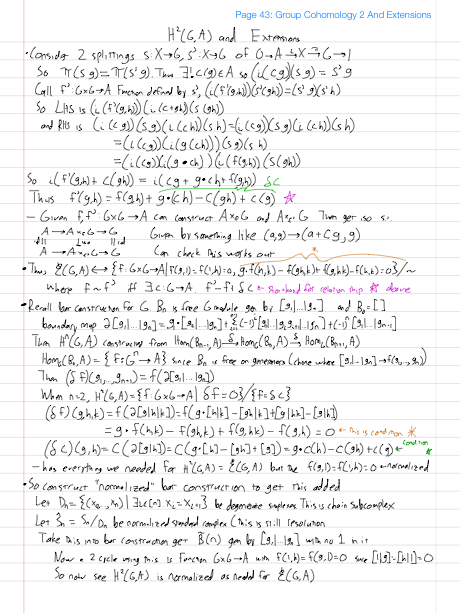 Page 43: Group Cohomology 2 And Extensions
H²(G,A) and Extensions
• Consider 2 splittings s: X→G, s': X→G of 0→A→X→G→1
So π(sg)=π(s'g). Thus ∃! c(g)∈A so (i(cg))(sg) = s'g
Call f': G×G→A function defined by s', (i(f'(g,h))(s'(gh)) = (s'g)(s'h)
So LHS is (i(f'(g,h))(i(c+gh)(s(gh))
and RHS is (i(cg))(sg)(i(ch))(sh) = (i(cg)(sg)(i(ch)(sh)
= (i(cg))(i(g(ch)))(sg)(sh)
= (i(cg))(i(g•ch))(i(f(g,h))(s(gh))
So i(f'(g,h)+c(gh)) = i(cg+g•ch+f(g,h)) δc
Thus f'(g,h) = f(g,h)+g•c(h)-c(gh)+c(g) *
- Given f, f': G×G→A can construct A×G and A×G Then get iso s.t.
A→A×G→G Given by something like (a,g)→(a+cg,g)
A→A×G→G Can check this works out
• Thus, ℰ(G,A)↔{f: G×G→A | f(g,1)=f(1,h)=0, g•f(h,k)-f(gh,k)+f(g,hk)-f(h,k)=0}/~
where f~f' if ∃c: G→A. f'-f is δc ← Shorthand for relationship * above
• Recall bar construction for G. Bn is free G module gen by [g₁|...|gn] and B₀=[]
boundary map ∂[g₁|...|gn] = g•[g₂|...|gn]+Σ(-1)ⁱ[g₁|...|gᵢgᵢ₊₁|...|gn]+(-1)ⁿ[g₁|...|gn-1]
Then Hⁿ(G,A) constructed from Hom(Bn-1,A)→Hom(Bn,A)→Hom(Bn+1,A)
Hom(Bn,A) = {f: Gⁿ→A} since Bn is free on generators (chose where [g₁|...|gn]→f(g₁,..,gn))
Then (δf)(g₁,...,gn+1) = f(∂[g₁|...|gn])
When n=2, H²(G,A) = {f: G×G→A | δf=0}/{f=δc}
(δf)(g,h,k) = f(∂[g|h|k]) = f(g•[h|k]-[gh|k]+[g|hk]-[g|h])
= g•f(h,k)-f(gh,k)+f(g,hk)-f(g,h)=0 ← this is condition *
(δc)(g,h) = c(∂[g|h]) = c(g•[h]-[gh]+[g]) = g•c(h)-c(gh)+c(g) ← condition *
- has everything we needed for H²(G,A) = ℰ(G,A) but the f(g,1)=f(1,h)=0 ← normalized
• So construct "normalized" bar construction to get this added
Let Dn = {(x₀,..,xn) | ∃i∈[n]. xᵢ=xᵢ₊₁} be degenerate simplexes This is chain subcomplex
Let = Sn/Dn be normalized standard complex (this is still resolution
Take this into bar construction get B(n) gen by [g₁|...|gn] with no 1 in it
Now a 2 cycle using this is function G×G→A with f(1,h)=f(g,1)=0 since [1|g]=[h|1]=0
So now see H²(G,A) is normalized as needed for ℰ(G,A)